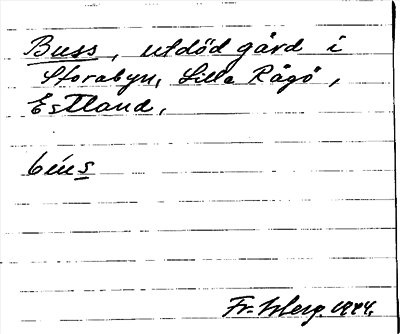 Buss, utdöd gård i
Storabyn, Lilla Rågö,
Estland.
Fr. 1924.